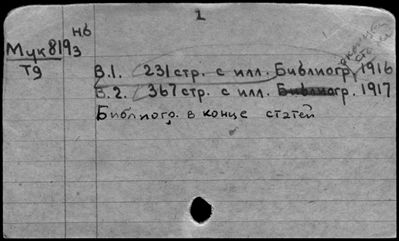 1
Мук 819з Н6
Т9
В.1. (231 стр. с илл. Библиогр. 1916
В.2. (367 стр. с илл. Библиогр. 1917
Библиогр. в конце статей